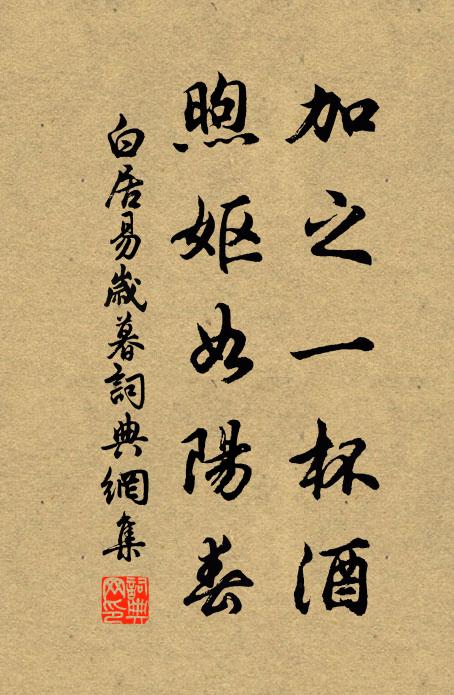 加之一杯酒
煦嫗如陽春
白居易歲暮詞典網集
詞典網印